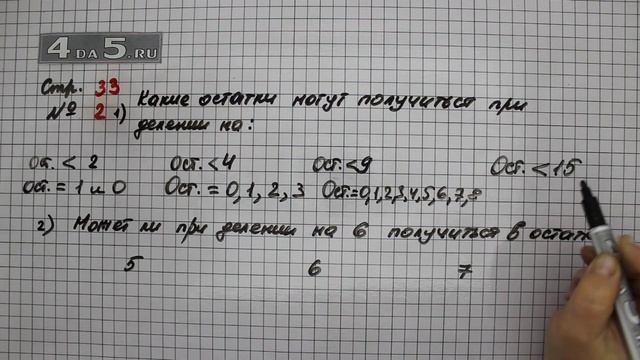 4DA5.RU
Стр. 33
№ 2 1) Какие остатки могут получиться при
делении на:
Ост. < 2 Ост. < 4 Ост. < 9 Ост. < 15
Ост. = 1 и 0 Ост. = 0, 1, 2, 3 Ост.=0,1,2,3,4,5,6,7,8
2) Может ли при делении на 6 получиться в остат
5 6 7